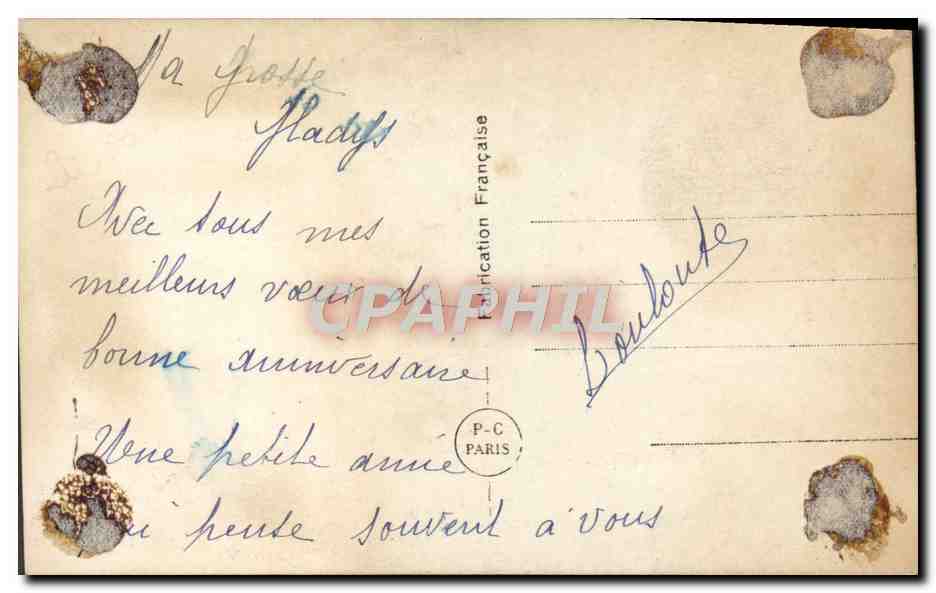 Ma grosse
Gladys
Avec tous mes
meilleurs vœux de
bonne anniversaire
Une petite amie
qui pense souvent à vous
Fabrication Française
P-C
PARIS
CPAPHIL